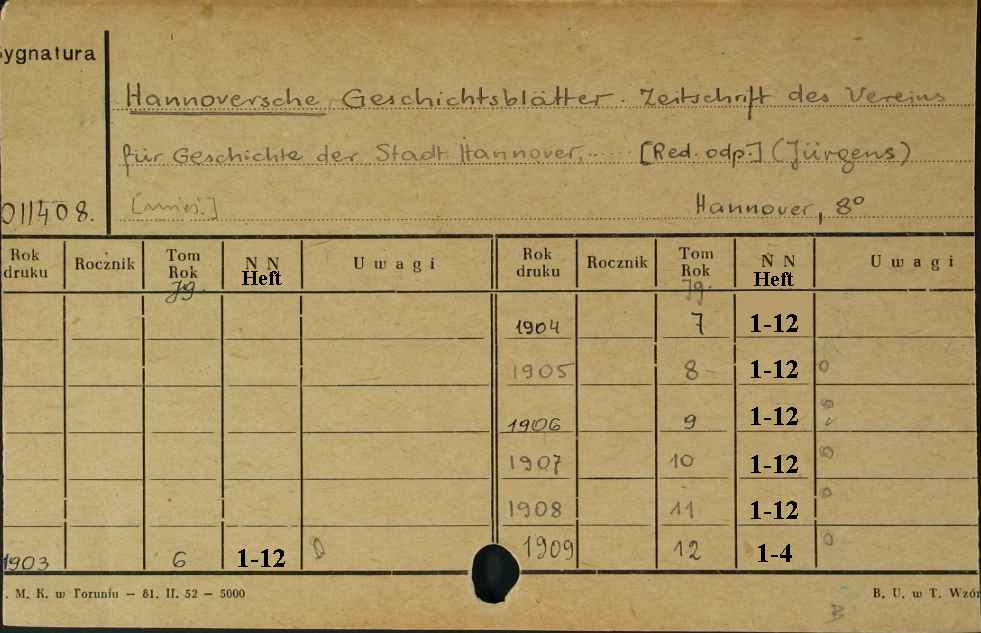 Sygnatura
Hannoversche Geschichtsblätter. Zeitschrift des Vereins
für Geschichte der Stadt Hannover, ..... [Red. odp.] (Jürgens)
011408. [mies.] Hannover, 8°
Rok druku Rocznik Tom Rok Jg. N N Heft Uwagi Rok druku Rocznik Tom Rok Jg. N N Heft Uwagi
1904 7 1-12
1905 8 1-12 0
1906 9 1-12
1907 10 1-12 0
1908 11 1-12 0
1903 6 1-12 0 1909 12 1-4 0
. M. K. w Toruniu — 81. II. 52 — 5000 B. U. w T. Wzór